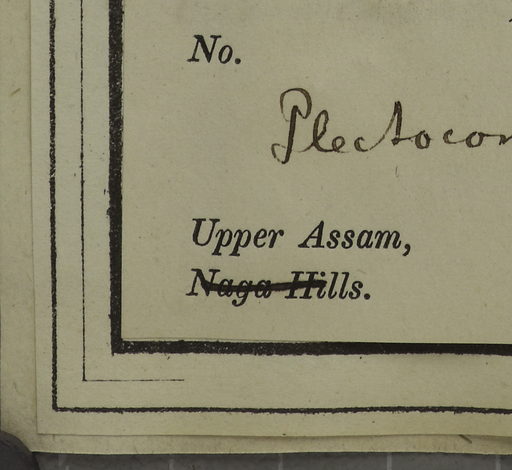 No.
Plectocom
Upper Assam,
Naga Hills.